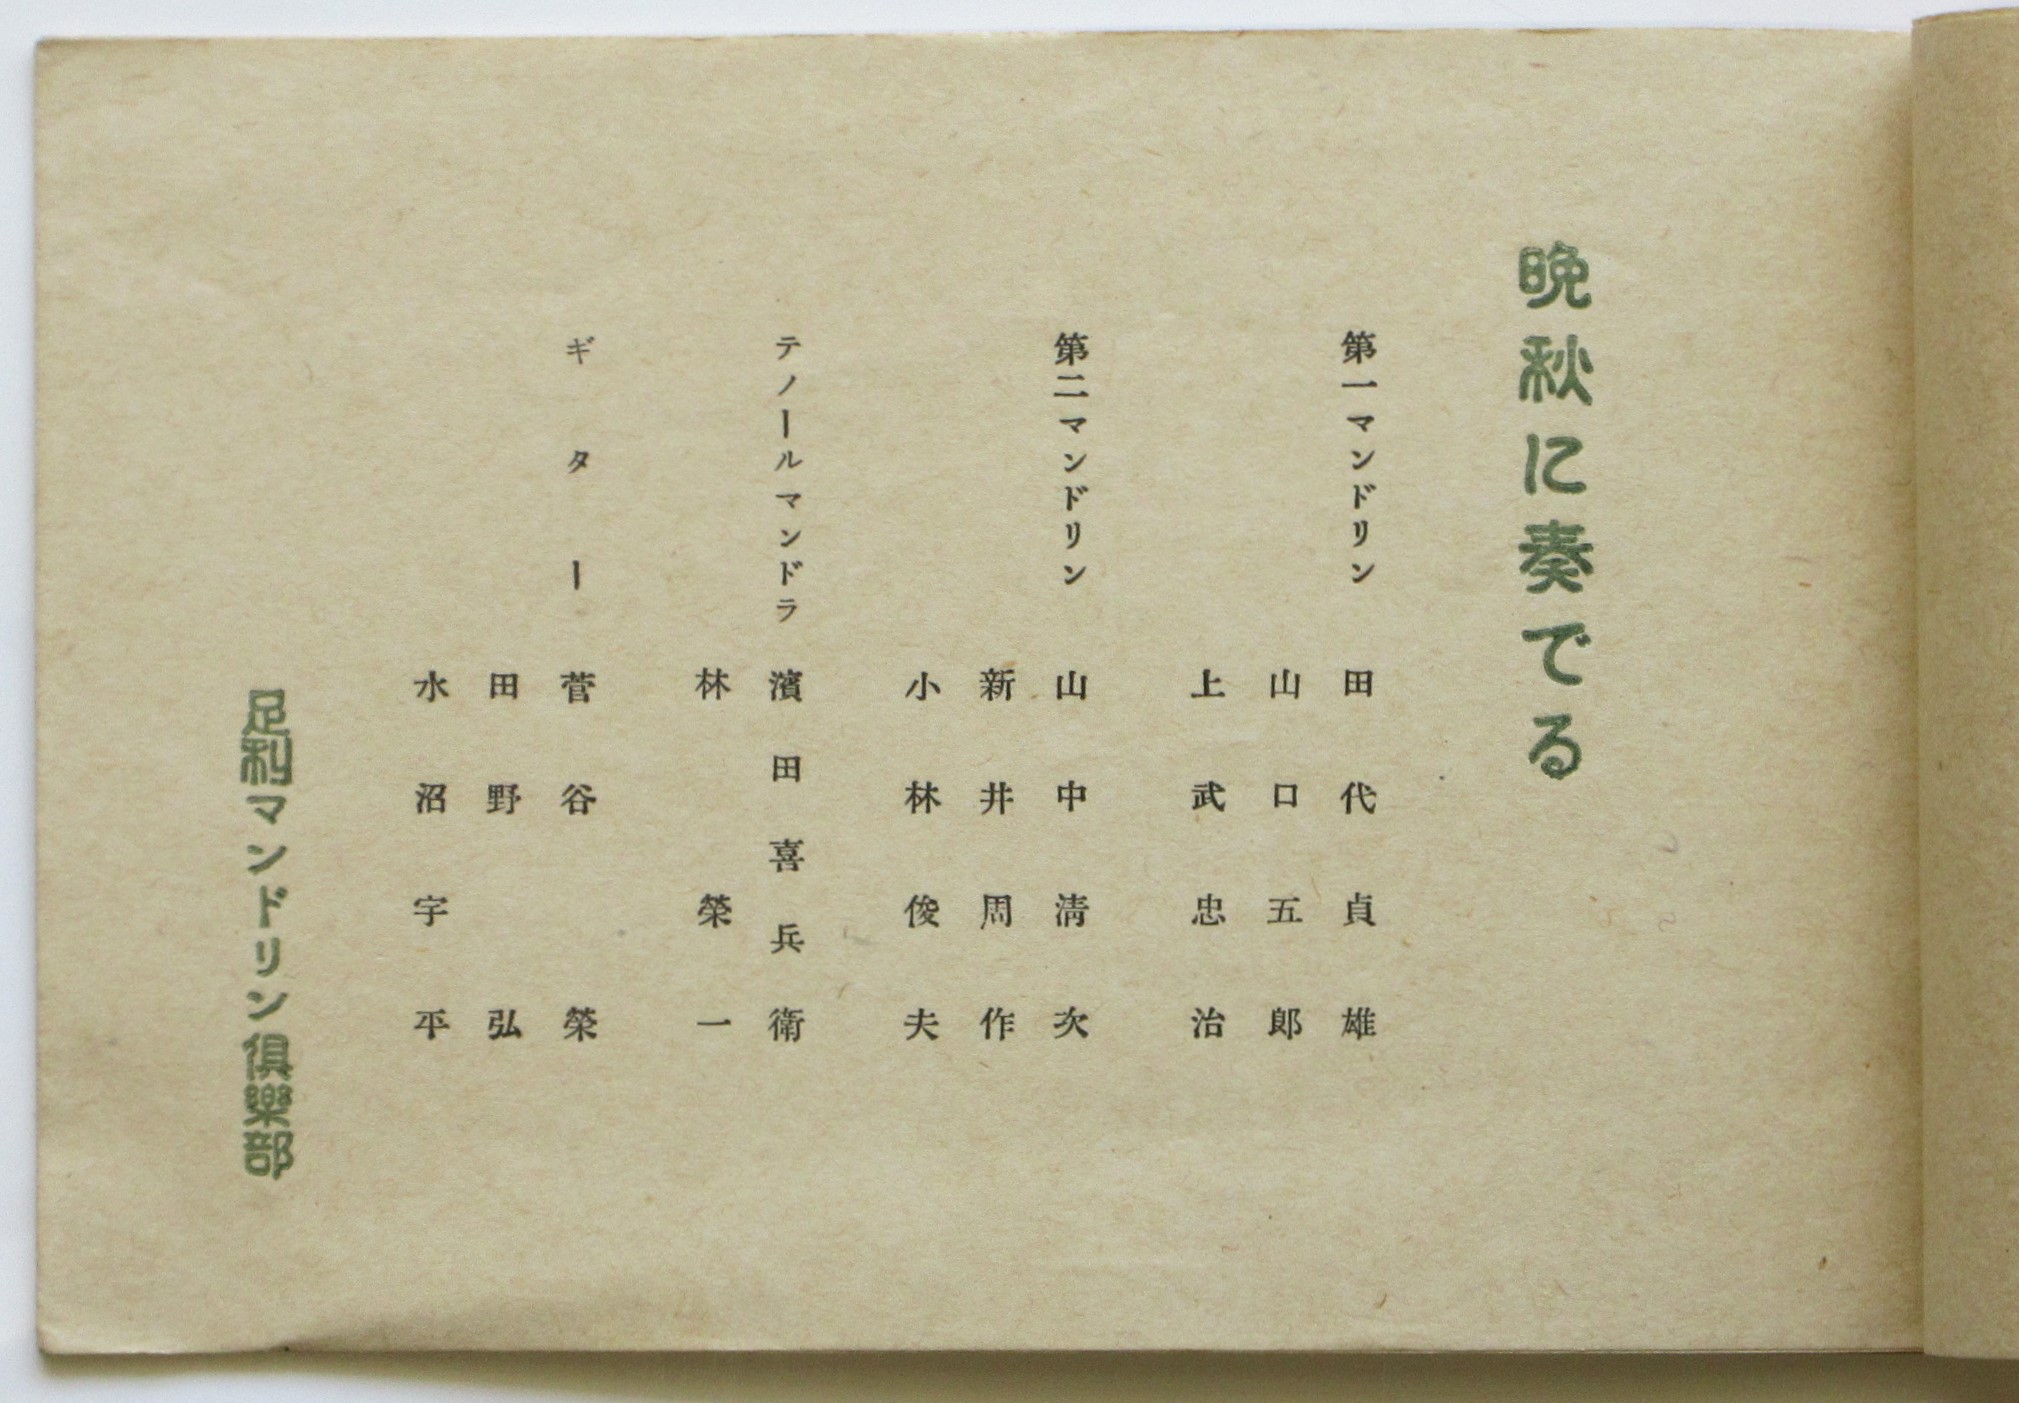 晩秋に奏でる
第一マンドリン 田代貞雄
山口五郎
上武忠治
第二マンドリン 山中清次
新井周作
小林俊夫
テノールマンドラ 濱田喜兵衛
林榮一
ギター 菅谷榮
田野弘
水沼宇平
足利マンドリン俱樂部